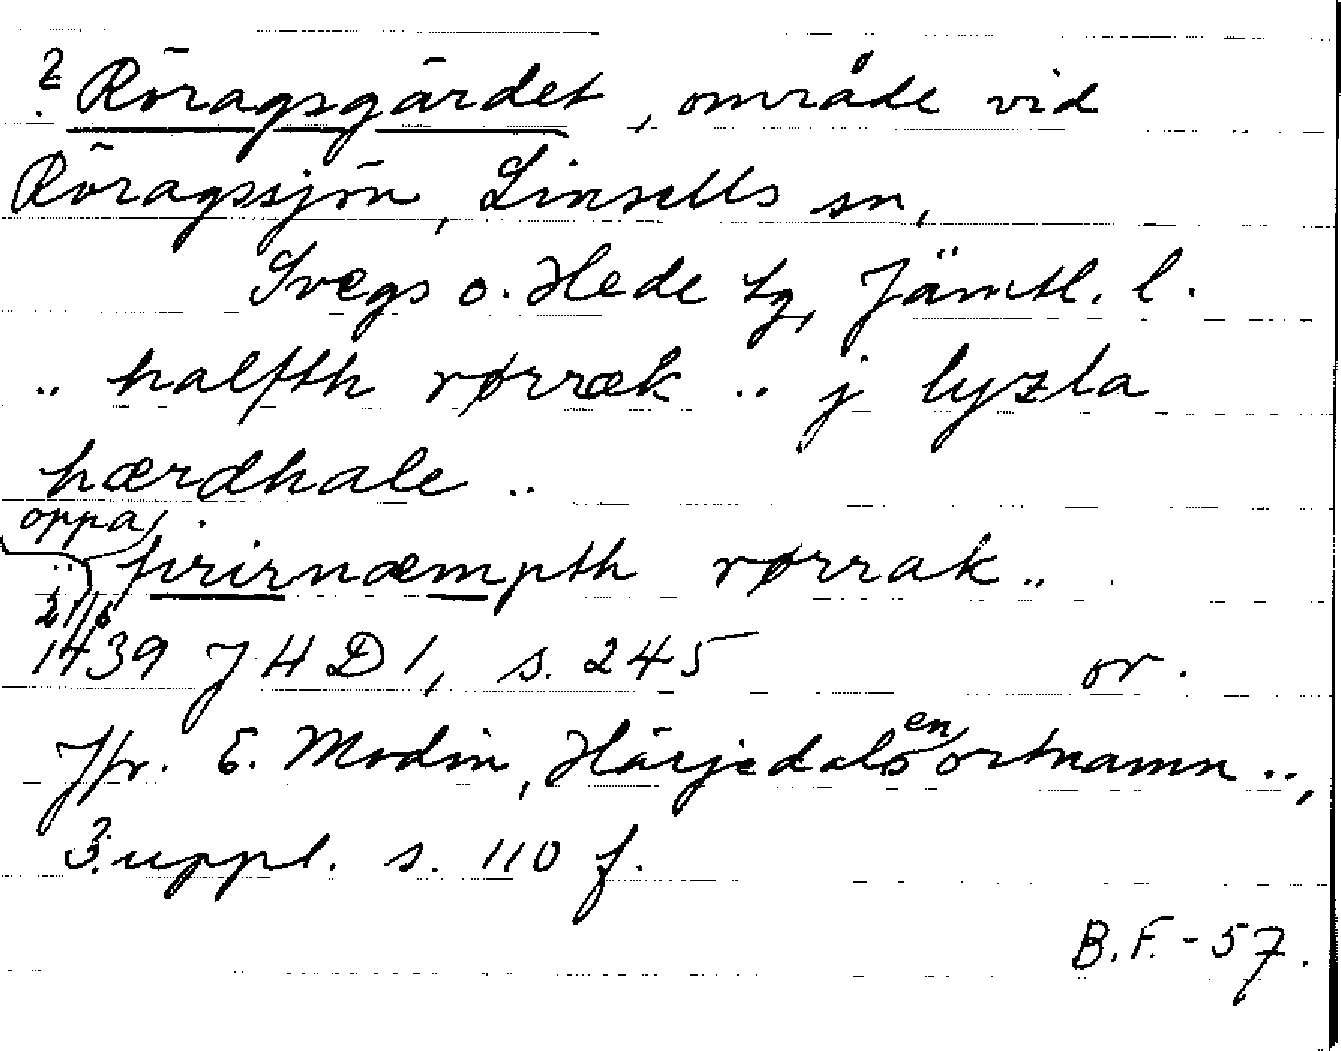 ? Röragsgärdet, område vid
Röragssjön, Linsells sn,
Svegs o. Hede tg, Jämtl. l.
.. halfth rørræk .. j lyzla
hærdhale ..
oppa
.. firirnæmpth rørrak ..
21/6
1439 JHD 1, s. 245 or.
Jfr. E. Modin, Härjedalens ortnamn ..,
3. uppl. s. 110 f.
B.F. - 57.